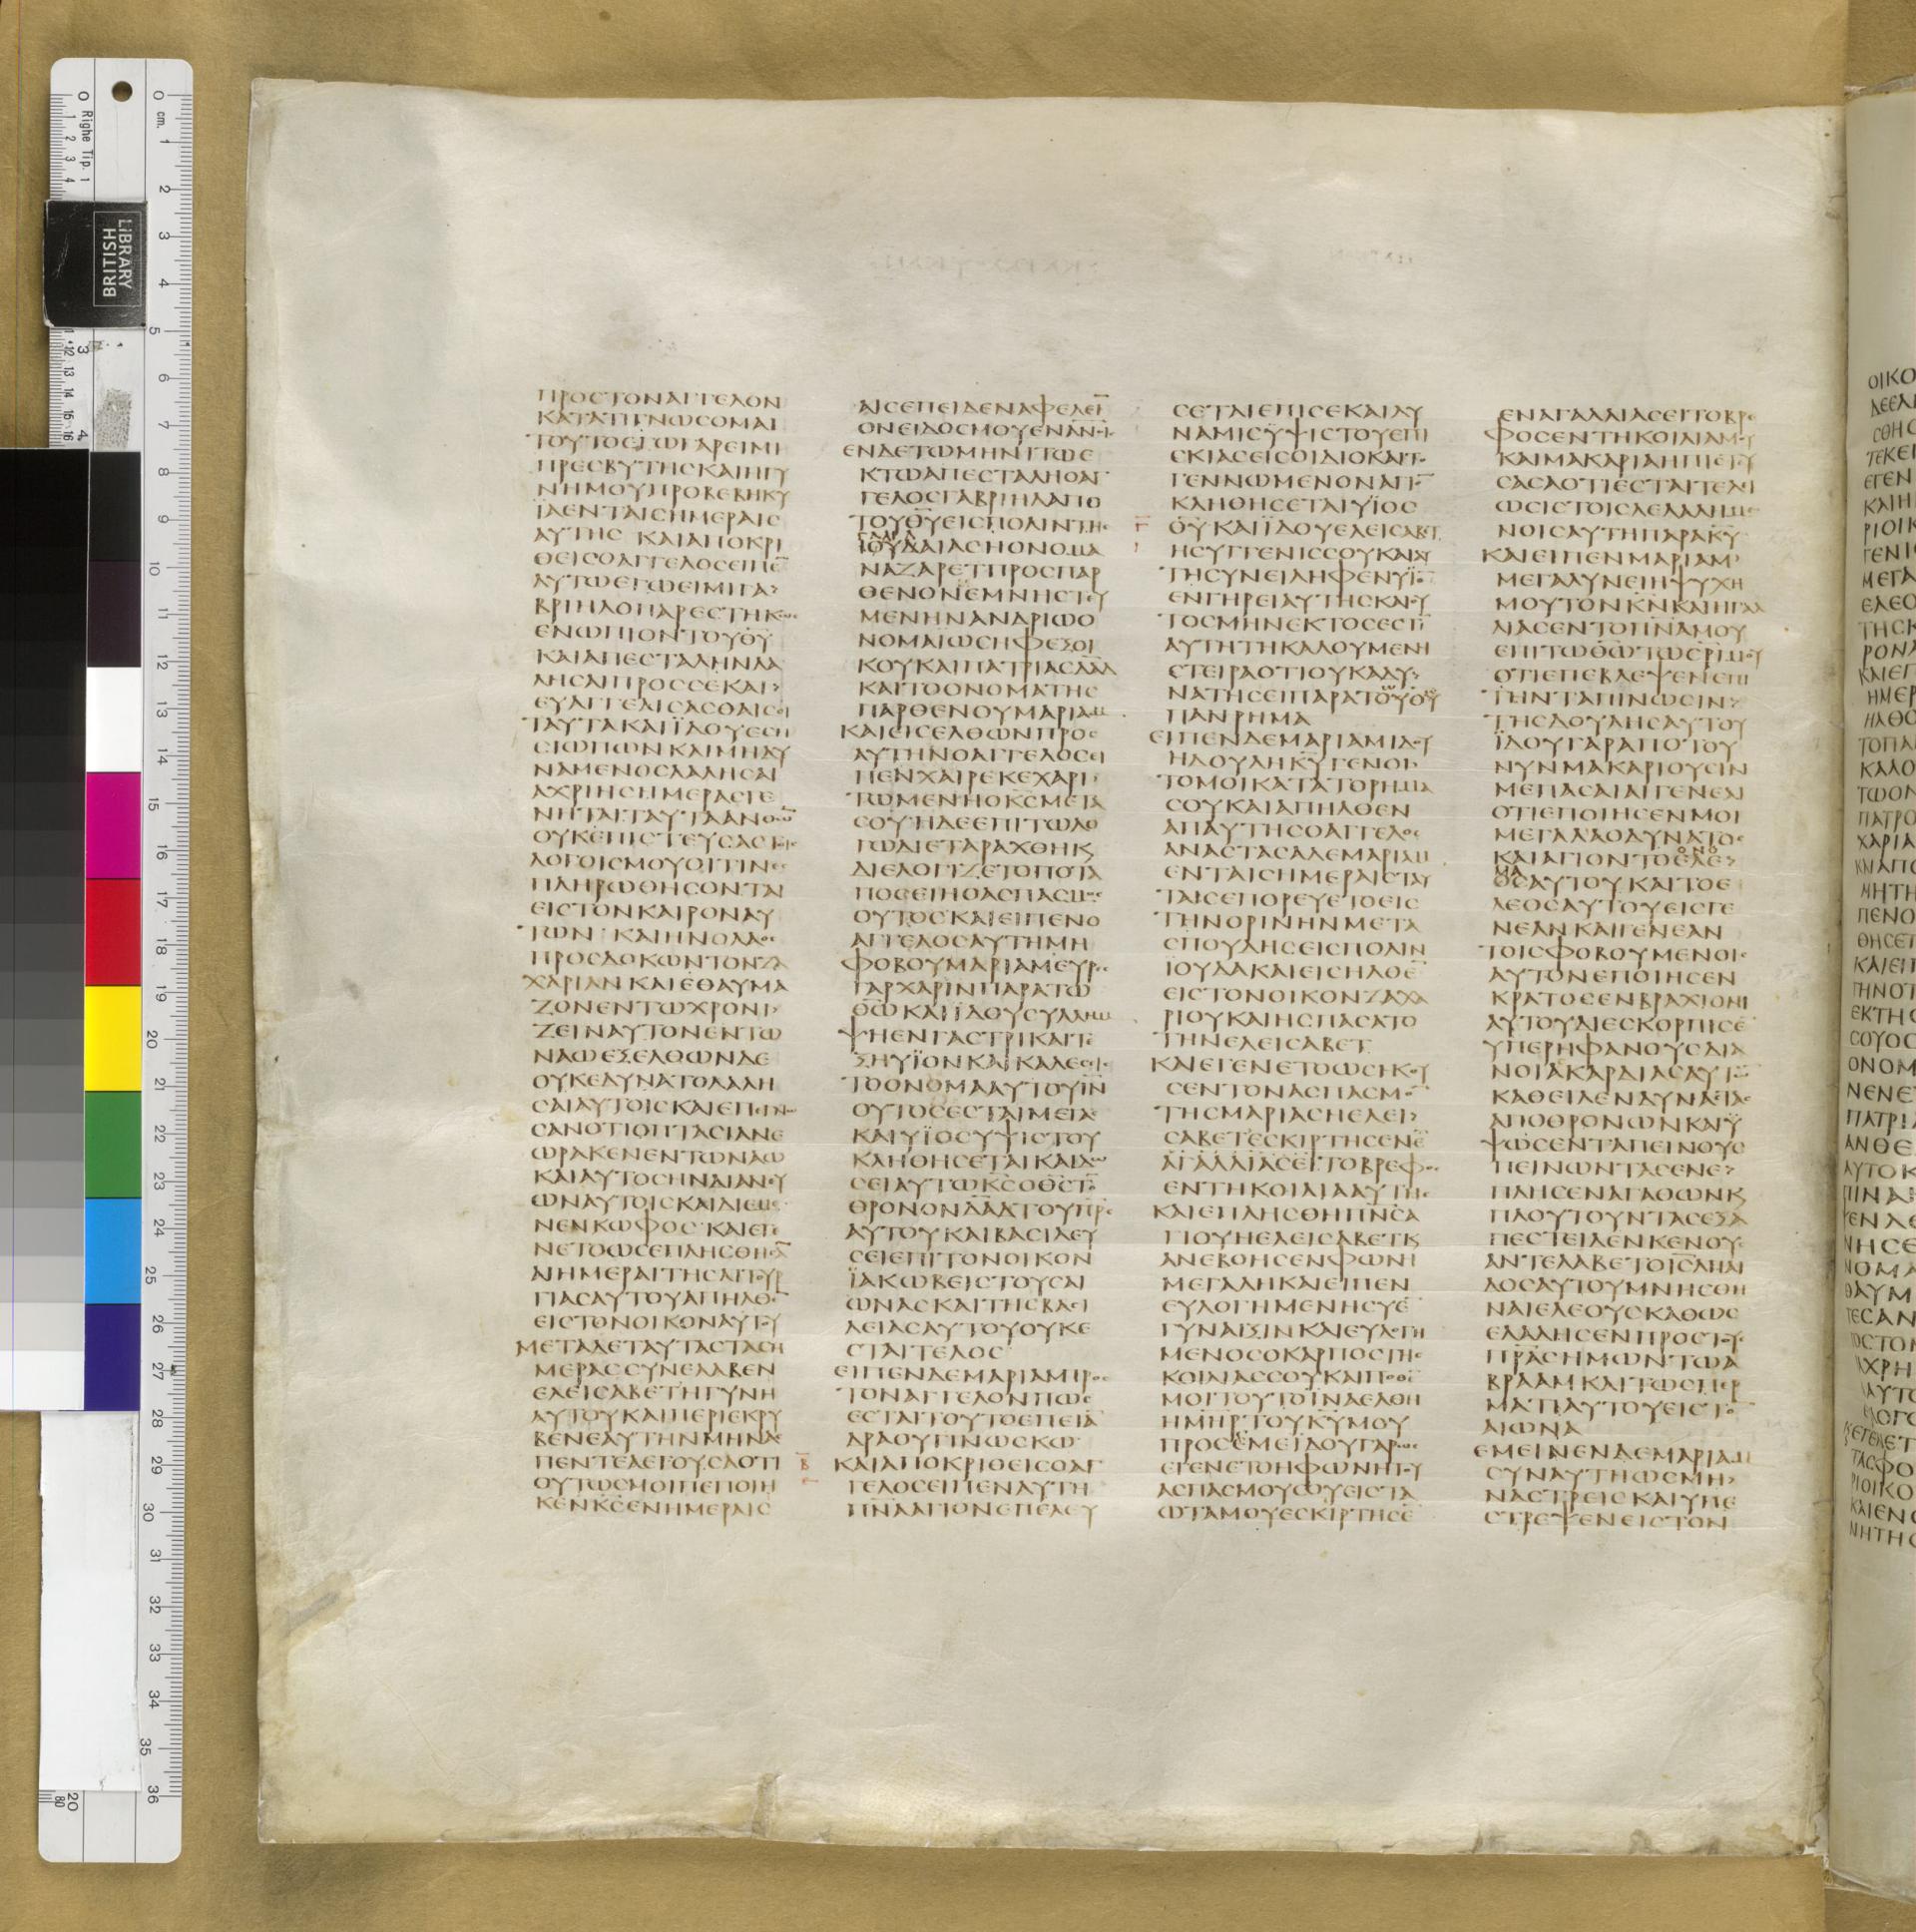 ΠΡΟΣΤΟΝΑΓΓΕΛΟΝ
ΚΑΤΑΤΙΓΝΩΣΟΜΑΙ
ΤΟΥΤΟΕΓΩΓΑΡΕΙΜΙ
ΠΡΕΣΒΥΤΗΣΚΑΙΗΓΥ
ΝΗΜΟΥΠΡΟΒΕΒΗΚΥ
ΪΑΕΝΤΑΙΣΗΜΕΡΑΙΣ
ΑΥΤΗΣ ΚΑΙΑΠΟΚΡΙ
ΘΕΙΣΟΑΓΓΕΛΟΣΕΙΠΕ̅
ΑΥΤΩΕΓΩΕΙΜΙΓΑ>
ΒΡΙΗΛΟΠΑΡΕΣΤΗΚΩΣ
ΕΝΩΠΙΟΝΤΟΥΘ̅Υ̅
ΚΑΙΑΠΕΣΤΑΛΗΝΛΑ
ΛΗΣΑΙΠΡΟΣΣΕΚΑΙ>
ΕΥΑΓΓΕΛΙΣΑΣΘΑΙΣΟΙ
ΤΑΥΤΑΚΑΙΪΔΟΥΕΣΗ
ΣΙΩΠΩΝΚΑΙΜΗΔΥ
ΝΑΜΕΝΟΣΛΑΛΗΣΑΙ
ΑΧΡΙΗΣΗΜΕΡΑΣΓΕ
ΝΗΤΑΙΤΑΥΤΑΑΝΘΩ̅
ΟΥΚΕΠΙΣΤΕΥΣΑΣΤΟΙΣ
ΛΟΓΟΙΣΜΟΥΟΙΤΙΝΕΣ
ΠΛΗΡΩΘΗΣΟΝΤΑΙ
ΕΙΣΤΟΝΚΑΙΡΟΝΑΥ
ΤΩΝ ΚΑΙΗΝΟΛΑΟΣ
ΠΡΟΣΔΟΚΩΝΤΟΝΖΑ
ΧΑΡΙΑΝΚΑΙΕΘΑΥΜΑ
ΖΟΝΕΝΤΩΧΡΟΝΙ>
ΖΕΙΝΑΥΤΟΝΕΝΤΩ
ΝΑΩΕΞΕΛΘΩΝΔΕ
ΟΥΚΕΔΥΝΑΤΟΛΑΛΗ
ΣΑΙΑΥΤΟΙΣΚΑΙΕΠΕΓΝΩ
ΣΑΝΟΤΙΟΠΤΑΣΙΑΝΕ
ΩΡΑΚΕΝΕΝΤΩΝΑΩ
ΚΑΙΑΥΤΟΣΗΝΔΙΑΝΕΥ
ΩΝΑΥΤΟΙΣΚΑΙΔΙΕΜΕ
ΝΕΝΚΩΦΟΣ ΚΑΙΕΓΕ
ΝΕΤΟΩΣΕΠΛΗΣΘΗΣΑ̅
ΑΙΗΜΕΡΑΙΤΗΣΛΙΤΟΥΡ
ΓΙΑΣΑΥΤΟΥΑΠΗΛΘΕ̅
ΕΙΣΤΟΝΟΙΚΟΝΑΥΤΟΥ
ΜΕΤΑΔΕΤΑΥΤΑΣΤΑΣΗ
ΜΕΡΑΣΣΥΝΕΛΑΒΕΝ
ΕΛΕΙΣΑΒΕΤΗΓΥΝΗ
ΑΥΤΟΥΚΑΙΠΕΡΙΕΚΡΥ
ΒΕΝΕΑΥΤΗΝΜΗΝΑΣ
ΠΕΝΤΕΛΕΓΟΥΣΑΟΤΙ
ΟΥΤΩΣΜΟΙΠΕΠΟΙΗ
ΚΕΝΚ̅Σ̅ΕΝΗΜΕΡΑΙΣ
ΑΙΣΕΠΕΙΔΕΝΑΦΕΛΕΙ̅
ΟΝΕΙΔΟΣΜΟΥΕΝΑΝΟΙΣ
ΕΝΔΕΤΩΜΗΝΙΤΩΕ
ΚΤΩΑΠΕΣΤΑΛΗΟΑΓ
ΓΕΛΟΣΓΑΒΡΙΗΛΑΠΟ
ΤΟΥΘ̅Υ̅ΕΙΣΠΟΛΙΝΤΗΣ
ΓΑΛΙΛ
ΙΟΥΔΑΙΑΣΗΟΝΟΜΑ
ΝΑΖΑΡΕΤΠΡΟΣΠΑΡ
ΘΕΝΟΝΕΜΝΗΣΤΕΥ
ΜΕΝΗΝΑΝΔΡΙΩΟ
ΝΟΜΑΙΩΣΗΦΕΞΟΙ
ΚΟΥΚΑΙΠΑΤΡΙΑΣΔΑ̅Δ̅
ΚΑΙΤΟΟΝΟΜΑΤΗΣ
ΠΑΡΘΕΝΟΥΜΑΡΙΑΜ
ΚΑΙΕΙΣΕΛΘΩΝΠΡΟΣ
ΑΥΤΗΝΟΑΓΓΕΛΟΣΕΙ
ΠΕΝΧΑΙΡΕΚΕΧΑΡΙ>
ΤΩΜΕΝΗΟΚ̅Σ̅ΜΕΤΑ
ΣΟΥΗΔΕΕΠΙΤΩΛΟ
ΓΩΔΙΕΤΑΡΑΧΘΗΚ
ΔΙΕΛΟΓΙΖΕΤΟΠΟΤΑ
ΠΟΣΕΙΗΟΑΣΠΑΣΜΟΣ
ΟΥΤΟΣΚΑΙΕΙΠΕΝΟ
ΑΓΓΕΛΟΣΑΥΤΗΜΗ
ΦΟΒΟΥΜΑΡΙΑΜΕΥΡΕΣ
ΓΑΡΧΑΡΙΝΠΑΡΑΤΩ
Θ̅Ω̅ΚΑΙΪΔΟΥΣΥΛΛΗΜ
ΨΗΕΝΓΑΣΤΡΙΚΑΙΤΕ
ΞΗΥΪΟΝΚΑΙΚΑΛΕΣΕΙΣ
ΤΟΟΝΟΜΑΑΥΤΟΥΙ̅Ν̅
ΟΥΤΟΣΕΣΤΑΙΜΕΓΑΣ
ΚΑΙΥΪΟΣΥΨΙΣΤΟΥ
ΚΛΗΘΗΣΕΤΑΙΚΑΙΔΩ
ΣΕΙΑΥΤΩΚ̅Σ̅ΟΘ̅Σ̅ΤΟ̅
ΘΡΟΝΟΝΔΑ̅Δ̅ΤΟΥΠΡ̅Σ̅
ΑΥΤΟΥΚΑΙΒΑΣΙΛΕΥ
ΣΕΙΕΠΙΤΟΝΟΙΚΟΝ
ΪΑΚΩΒΕΙΣΤΟΥΣΑΙ
ΩΝΑΣΚΑΙΤΗΣΒΑΣΙ
ΛΕΙΑΣΑΥΤΟΥΟΥΚΕ
ΣΤΑΙΤΕΛΟΣ
ΕΙΠΕΝΔΕΜΑΡΙΑΜΠΡΟΣ
ΤΟΝΑΓΓΕΛΟΝΠΩΣ
ΕΣΤΑΙΤΟΥΤΟΕΠΕΙΑ̅
ΔΡΑΟΥΓΙΝΩΣΚΩ
Β
ΚΑΙΑΠΟΚΡΙΘΕΙΣΟΑΓ
ΓΕΛΟΣΕΙΠΕΝΑΥΤΗ
Π̅Ν̅Α̅ΑΓΙΟΝΕΠΕΛΕΥ
ΣΕΤΑΙΕΠΙΣΕΚΑΙΔΥ
ΝΑΜΙΣΥΨΙΣΤΟΥΕΠΙ
ΣΚΙΑΣΕΙΣΟΙΔΙΟΚΑΙΤΟ
ΓΕΝΝΩΜΕΝΟΝΑΓΙΟ̅
ΚΛΗΘΗΣΕΤΑΙΥΪΟΣ
Γ
Θ̅Υ̅ΚΑΙΪΔΟΥΕΛΕΙΣΑΒΕΤ
ΗΣΥΓΓΕΝΙΣΣΟΥΚΑΙΑΥ
ΤΗΣΥΝΕΙΛΗΦΕΝΥΪΟ̅
ΕΝΓΗΡΕΙΑΥΤΗΣΚΑΙΟΥ
ΤΟΣΜΗΝΕΚΤΟΣΕΣΤΙ̅
ΑΥΤΗΤΗΚΑΛΟΥΜΕΝΗ
ΣΤΕΙΡΑΟΤΙΟΥΚΑΔΥ>
ΝΑΤΗΣΕΙΠΑΡΑΤΟΥΘ̅Υ̅
ΠΑΝΡΗΜΑ
ΕΙΠΕΝΔΕΜΑΡΙΑΜΙΔΟΥ
ΗΔΟΥΛΗΚ̅Υ̅ΓΕΝΟΙ
ΤΟΜΟΙΚΑΤΑΤΟΡΗΜΑ
ΣΟΥΚΑΙΑΠΗΛΘΕΝ
ΑΠΑΥΤΗΣΟΑΓΓΕΛΟΣ
ΑΝΑΣΤΑΣΑΔΕΜΑΡΙΑΜ
ΕΝΤΑΙΣΗΜΕΡΑΙΣΤΑΥ
ΤΑΙΣΕΠΟΡΕΥΕΤΟΕΙΣ
ΤΗΝΟΡΙΝΗΝΜΕΤΑ
ΣΠΟΥΔΗΣΕΙΣΠΟΛΙΝ
ΙΟΥΔΑΚΑΙΕΙΣΗΛΘΕ̅
ΕΙΣΤΟΝΟΙΚΟΝΖΑΧΑ
ΡΙΟΥΚΑΙΗΣΠΑΣΑΤΟ
ΤΗΝΕΛΕΙΣΑΒΕΤ
ΚΑΙΕΓΕΝΕΤΟΩΣΗΚΟΥ
ΣΕΝΤΟΝΑΣΠΑΣΜΟ̅
ΤΗΣΜΑΡΙΑΣΗΕΛΕΙ>
ΣΑΒΕΤΕΣΚΙΡΤΗΣΕΝΕ̅
ΑΓΑΛΛΙΑΣΕΙΤΟΒΡΕΦΟΣ
ΕΝΤΗΚΟΙΛΙΑΑΥΤΗΣ
ΚΑΙΕΠΛΗΣΘΗΠ̅Ν̅Σ̅Α
ΓΙΟΥΗΕΛΕΙΣΑΒΕΤΚ
ΑΝΕΒΟΗΣΕΝΦΩΝΗ
ΜΕΓΑΛΗΚΑΙΕΙΠΕΝ
ΕΥΛΟΓΗΜΕΝΗΣΥΕ̅
ΓΥΝΑΙΞΙΝΚΑΙΕΥΛΟΓΗ
ΜΕΝΟΣΟΚΑΡΠΟΣΤΗΣ
ΚΟΙΛΙΑΣΣΟΥΚΑΙΠΟΘΕ̅
ΜΟΙΤΟΥΤΟΪΝΑΕΛΘΗ
ΗΜ̅Η̅Ρ̅ΤΟΥΚ̅Υ̅ΜΟΥ
ΠΡΟΣΕΜΕΪΔΟΥΓΑΡΩΣ
ΕΓΕΝΕΤΟΗΦΩΝΗΤΟΥ
ΑΣΠΑΣΜΟΥΣΟΥΕΙΣΤΑ
ΩΤΑΜΟΥΕΣΚΙΡΤΗΣΕ̅
ΕΝΑΓΑΛΛΙΑΣΕΙΤΟΒΡΕ
ΦΟΣΕΝΤΗΚΟΙΛΙΑΜΟΥ
ΚΑΙΜΑΚΑΡΙΑΗΠΙΣΤΕΥ
ΣΑΣΑΟΤΙΕΣΤΑΙΤΕΛΕΙ
ΩΣΙΣΤΟΙΣΛΕΛΑΛΗΜΕ
ΝΟΙΣΑΥΤΗΠΑΡΑΚ̅Υ̅
ΚΑΙΕΙΠΕΝΜΑΡΙΑΜ
ΜΕΓΑΛΥΝΕΙΗΨΥΧΗ
ΜΟΥΤΟΝΚ̅Ν̅ΚΑΙΗΓΑΛ
ΛΙΑΣΕΝΤΟΠ̅Ν̅Α̅ΜΟΥ
ΕΠΙΤΩΘ̅Ω̅ΤΩΣΡΙΜΟΥ
ΟΤΙΕΠΕΒΛΕΨΕΝΕΠΙ
ΤΗΝΤΑΠΙΝΩΣΙΝ>
ΤΗΣΔΟΥΛΗΣΑΥΤΟΥ
ΪΔΟΥΓΑΡΑΠΟΤΟΥ
ΝΥΝΜΑΚΑΡΙΟΥΣΙΝ
ΜΕΠΑΣΑΙΑΙΓΕΝΕΑΙ
ΟΤΙΕΠΟΙΗΣΕΝΜΟΙ
ΜΕΓΑΛΑΟΔΥΝΑΤΟΣ
ΚΑΙΑΓΙΟΝΤΟΕΛΕ>
ΟΝΟ
ΜΑ
ΟΣΑΥΤΟΥΚΑΙΤΟΕ
ΛΕΟΣΑΥΤΟΥΕΙΣΓΕ
ΝΕΑΝΚΑΙΓΕΝΕΑΝ
ΤΟΙΣΦΟΒΟΥΜΕΝΟΙΣ
ΑΥΤΟΝΕΠΟΙΗΣΕΝ
ΚΡΑΤΟΣΕΝΒΡΑΧΙΟΝΙ
ΑΥΤΟΥΔΙΕΣΚΟΡΠΙΣΕ̅
ΥΠΕΡΗΦΑΝΟΥΣΔΙΑ
ΝΟΙΑΚΑΡΔΙΑΣΑΥΤΩ̅
ΚΑΘΕΙΛΕΝΔΥΝΑΣΤΑΣ
ΑΠΟΘΡΟΝΩΝΚΑΙΥ
ΨΩΣΕΝΤΑΠΕΙΝΟΥΣ
ΠΕΙΝΩΝΤΑΣΕΝΕ>
ΠΛΗΣΕΝΑΓΑΘΩΝΚ
ΠΛΟΥΤΟΥΝΤΑΣΕΞΑ
ΠΕΣΤΕΙΛΕΝΚΕΝΟΥΣ
ΑΝΤΕΛΑΒΕΤΟΙ̅Σ̅Λ̅ΠΑΙ
ΔΟΣΑΥΤΟΥΜΝΗΣΘΗ
ΝΑΙΕΛΕΟΥΣΚΑΘΩΣ
ΕΛΑΛΗΣΕΝΠΡΟΣΤΟΥΣ
Π̅Ρ̅Α̅Σ̅ΗΜΩΝΤΩΑ
ΒΡΑΑΜΚΑΙΤΩΣΠΕΡ
ΜΑΤΙΑΥΤΟΥΕΙΣΤΟ̅
ΑΙΩΝΑ
ΕΜΕΙΝΕΝΔΕΜΑΡΙΑΜ
ΣΥΝΑΥΤΗΩΣΜΗ>
ΝΑΣΤΡΕΙΣΚΑΙΥΠΕ
ΣΤΡΕΨΕΝΕΙΣΤΟΝ